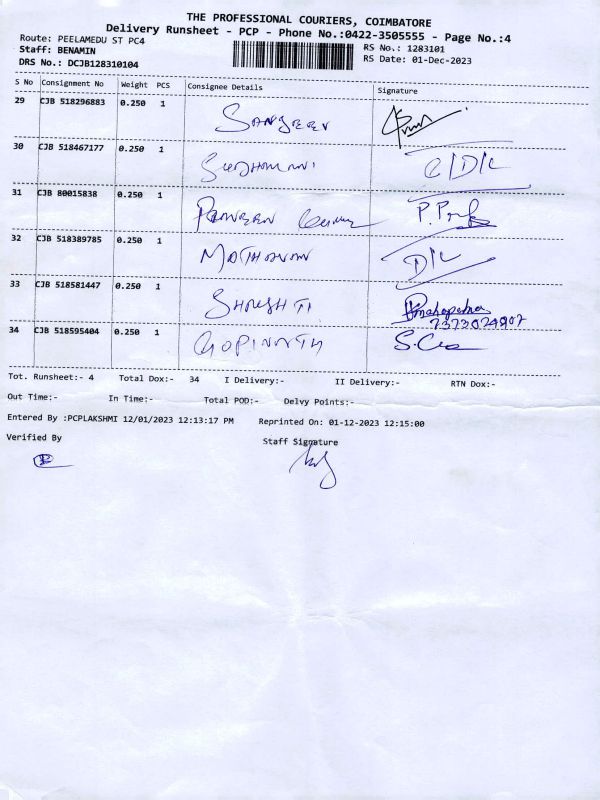 THE PROFESSIONAL COURIERS, COIMBATORE
Delivery Runsheet - PCP - Phone No.:0422-3505555 - Page No.:4
Route: PEELAMEDU ST PC4
RS No.: 1283101
Staff: BENAMIN
RS Date: 01-Dec-2023
DRS No.: DCJB128310104
S No Consignment No Weight PCS Consignee Details Signature
29 CJB 518296883 0.250 1 SANJEEV
30 CJB 518467177 0.250 1 C/D/L
31 CJB 80015838 0.250 1
32 CJB 518389785 0.250 1 MATHAVAN D/L
33 CJB 518581447 0.250 1
7373029907
34 CJB 518595404 0.250 1 GOPINATH
Tot. Runsheet:- 4 Total Dox:- 34 I Delivery:- II Delivery:- RTN Dox:-
Out Time:- In Time:- Total POD:- Delvy Points:-
Entered By :PCPLAKSHMI 12/01/2023 12:13:17 PM Reprinted On: 01-12-2023 12:15:00
Verified By
Staff Signature